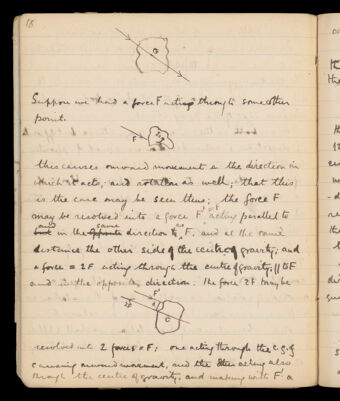 18
G
Suppose we had a force F acting through some other
point.
F
this causes onward movement in the direction in
which it acts, and rotation as well; that this
is the case may be seen thus; the force F
may be resolved into a force F' acting parallel to
and in the same direction as F, and at the same
distance the other side of the centre of gravity, and
a force = 2F acting through the centre of gravity, // to F
and in the opposite direction. The force 2F may be
F'
2F
G
F
resolved into 2 forces = F; one acting through the c. of g
causing onward movement, and the other acting also
through the centre of gravity, and making with F' a